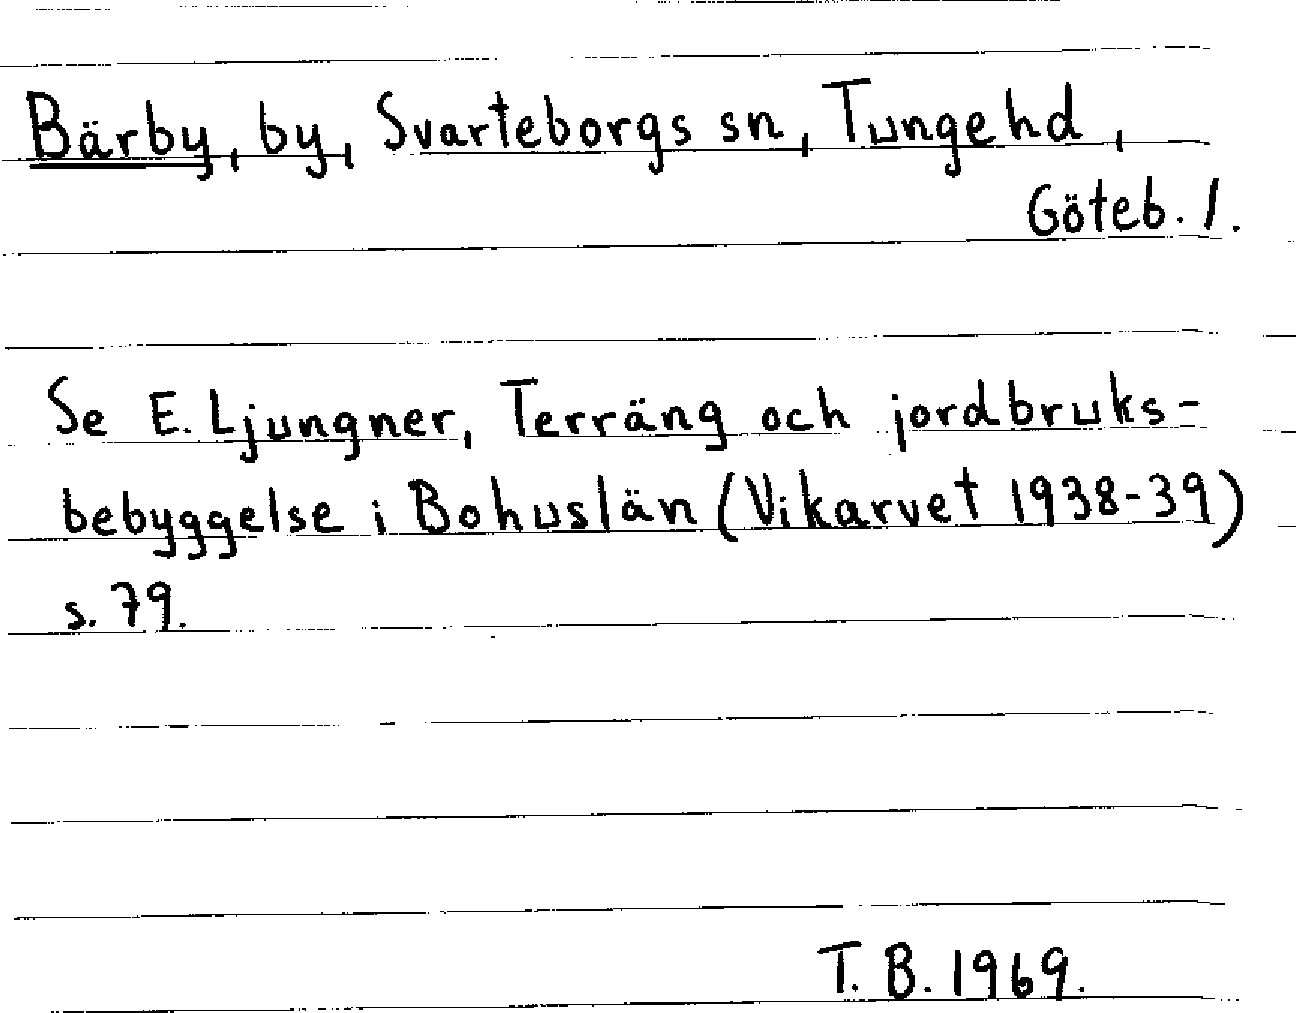 Bärby, by, Svarteborgs sn, Tunge hd,
Göteb. l.
Se E. Ljungner, Terräng och jordbruks-
bebyggelse i Bohuslän (Vikarvet 1938-39)
s. 79.
T. B. 1969.